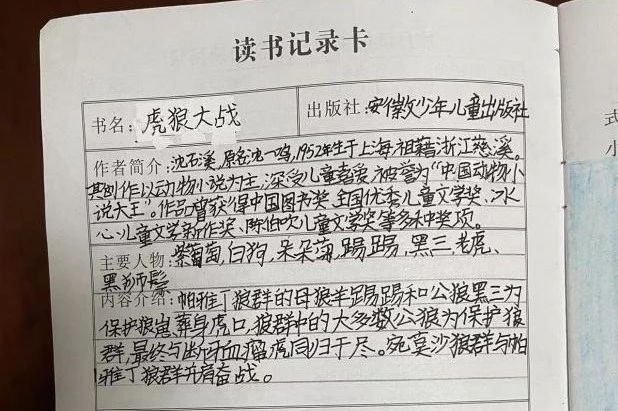 读书记录卡
书名：虎狼大战 出版社：安徽少年儿童出版社
作者简介：沈石溪，原名沈一鸣，1952年生于上海，祖籍浙江慈溪。
其创作以动物小说为主，深受儿童喜爱，被誉为“中国动物小
说大王”。作品曾获得中国图书奖、全国优秀儿童文学奖、冰
心儿童文学新作奖、陈伯吹儿童文学奖等多种奖项。
主要人物：紫葡萄，白狗，朵朵菊，踢踢，黑三，老虎、
黑狮髦
内容介绍：帕雅丁狼群的母狼羊踢踢和公狼黑三为
保护狼崽，葬身虎口，狼群中的大多数公狼为保护狼
群，最终与血瘤虎同归于尽。宛莫沙狼群与帕
雅丁狼群并肩奋战。
式
小